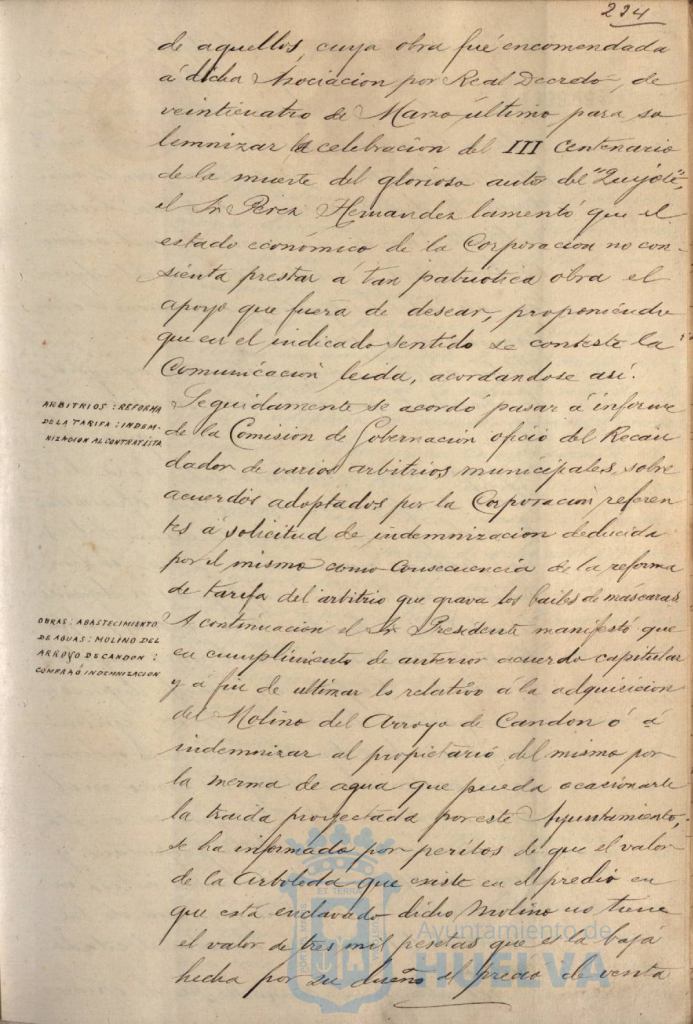 224
de aquellos, cuya obra fué encomendada
á dicha Asociacion por Real Decreto, de
veinticuatro de Marzo último para so
lemnizar la celebracion del III Centenario
de la muerte del glorioso autor del "Quijote",
el Sr. Perez Hernandez lamentó que el
estado económico de la Corporacion no con-
sienta prestar á tan patriótica obra el
apoyo que fuera de desear, proponiendo
que en el indicado sentido se conteste la
Comunicacion leida, acordandose asi.
ARBITRIOS: REFORMA
DE LA TARIFA: INDEM-
NIZACION AL CONTRATISTA
Seguidamente se acordó pasar á informe
de la Comision de Gobernación oficio del Recau
dador de varios arbitrios municipales, sobre
acuerdos adoptados por la Corporacion referen
tes á solicitud de indemnizacion deducida
por el mismo como consecuencia de la reforma
de tarifa del arbitrio que grava los bailes de máscaras
OBRAS: ABASTECIMIENTO
DE AGUAS: MOLINO DEL
ARROYO DE CANDON:
COMPRA Ó INDEMNIZACION
A continuacion el Sr. Presidente manifestó que
en cumplimiento de anterior acuerdo capitular
y á fin de ultimar lo relativo á la adquisicion
del Molino del Arroyo de Candon ó á
indemnizar al propietario del mismo por
la merma de agua que pueda ocasionarle
la traida proyectada por este Ayuntamiento,
se ha informado por peritos de que el valor
de la Arboleda que existe en el predio en
que está enclavado dicho Molino no tiene
el valor de tres mil pesetas que es la baja
hecha por su dueño al precio de venta
Ayuntamiento de
HUELVA